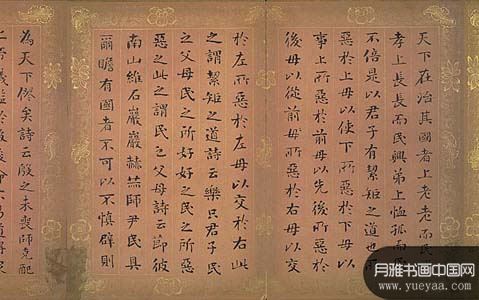 天下在治其國者上老老而民
孝上長長而民興弟上恤孤而
不倍是以君子有絜矩之道也所
惡於上毋以使下所惡於下毋以
事上所惡於前毋以先後所惡於
後毋以從前所惡於右毋以交
於左所惡於左毋以交於右此
之謂絜矩之道詩云樂只君子民
之父母民之所好好之民之所惡
惡之此之謂民之父母詩云節彼
南山維石巖巖赫赫師尹民具
爾瞻有國者不可以不慎辟則
為天下僇矣詩云殷之未喪師克配
月雅书画中国网
www.yueyaa.com